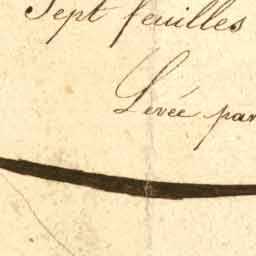 Sept feuilles
Levée par